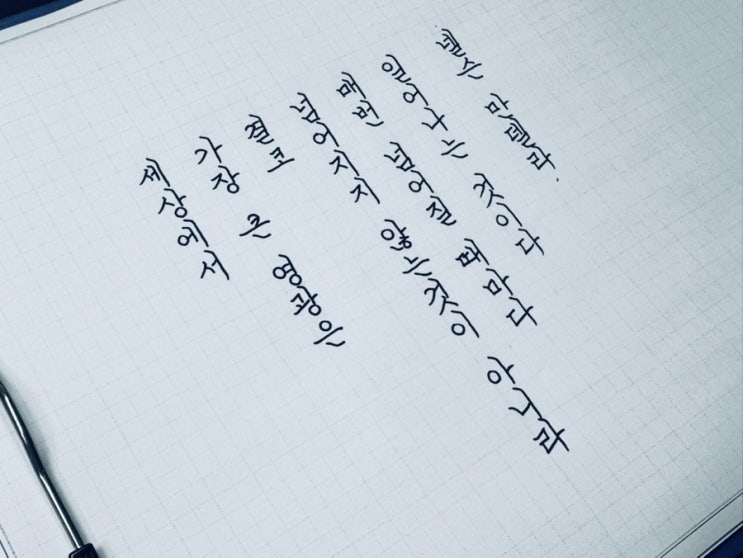 세상에서
가장 큰 영광은
결코
넘어지지 않는것이 아니라
매번 넘어질 때마다
일어나는 것이다
넬슨 만델라.